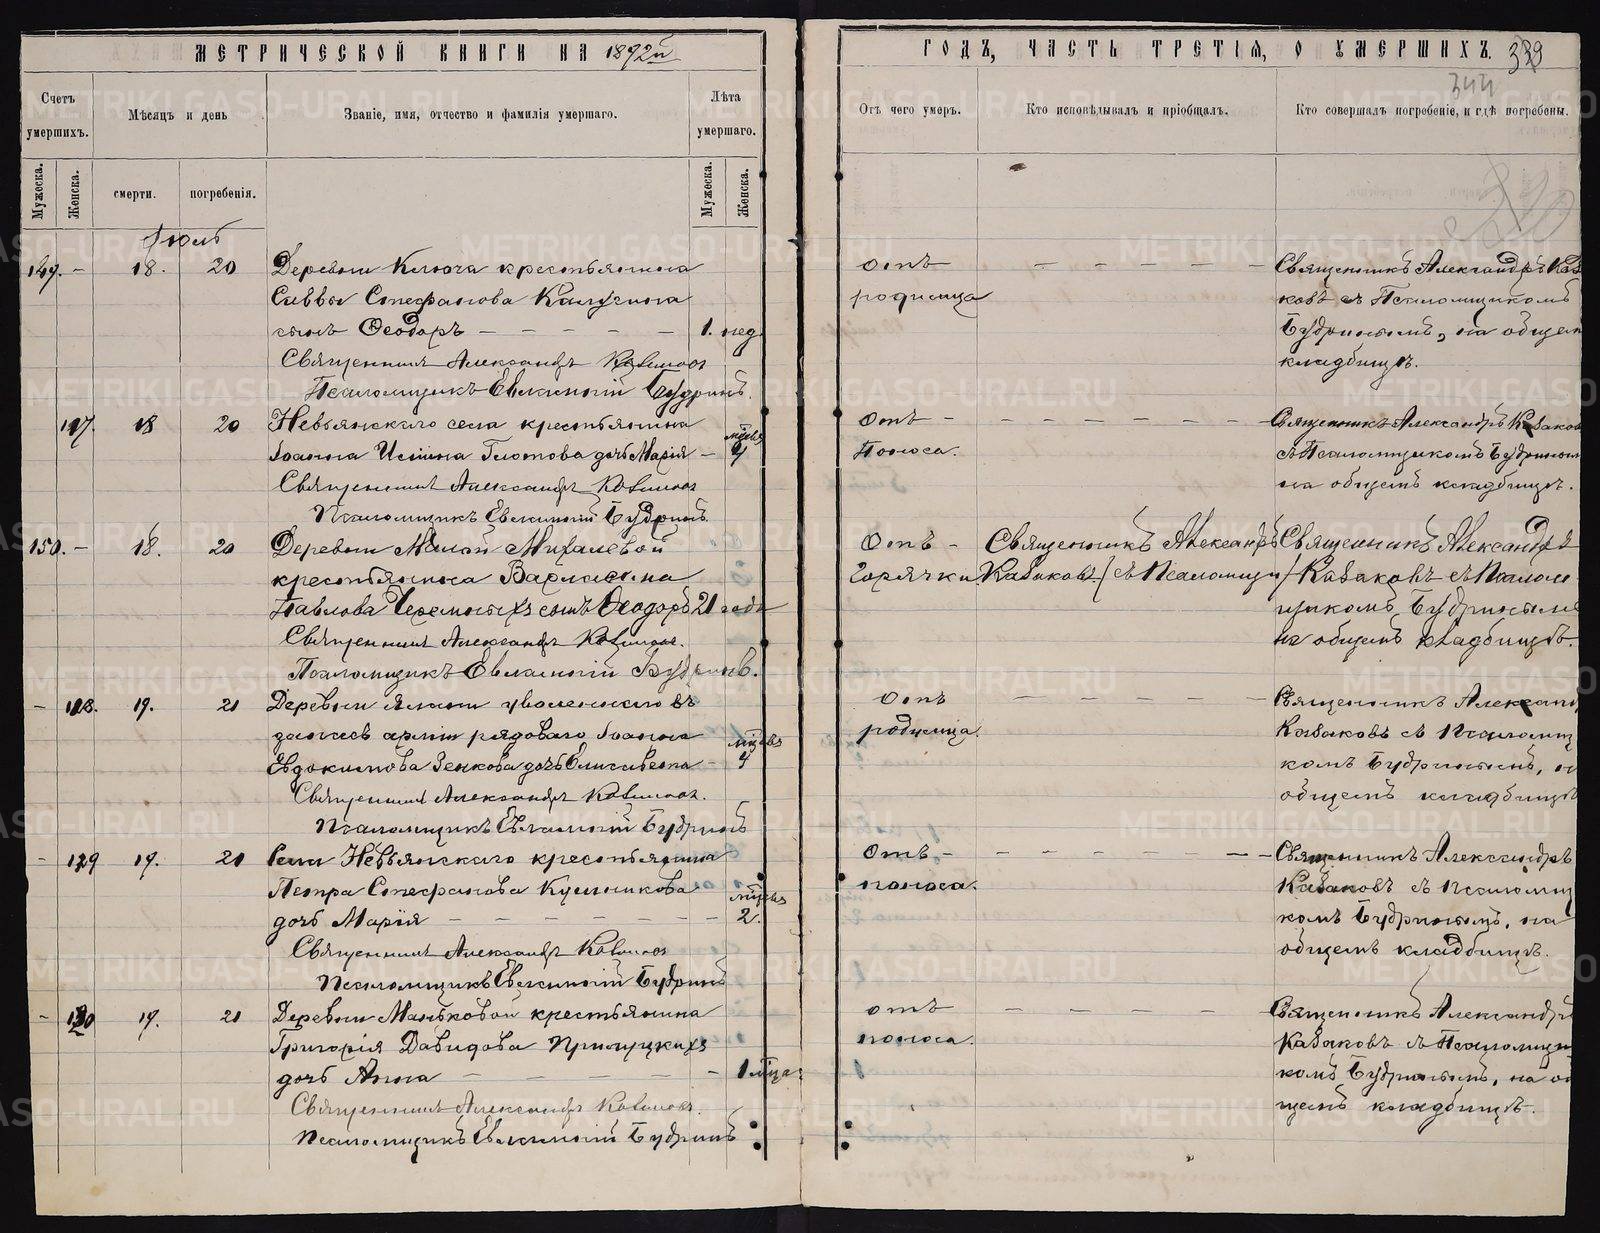 МЕТРИЧЕСКОЙ КНИГИ НА 1892й
Счетъ умершихъ.
Мѣсяцъ и день
Званіе, имя, отчество и фамилія умершаго.
Лѣта умершаго.
Мужеска.
Женска.
смерти.
погребенія.
Мужеска.
Женска.
Іюль
149. – 18. 20 Деревни Ключа крестьянина
Саввы Стефанова Калугина
сынъ Ѳеодоръ – – – – – 1. нед.
Священникъ Александръ Кабаковъ
Псаломщикъ Евлампій Будринъ.
117. 18 20 Невьянскаго села крестьянина
Іоанна Глотова дочь Марія – мѣсяц. 4
Священникъ Александръ Кабаковъ
Псаломщикъ Евлампій Будринъ.
150. – 18. 20 Деревни Малой Михалевой
крестьянина Варлаама
Павлова сынъ Ѳеодоръ 21 года
Священникъ Александръ Кабаковъ.
Псаломщикъ Евлампій Будринъ.
– 118. 19. 21 Деревни уволеннаго въ
запасъ арміи рядоваго Іоанна
Евдокимова Зенкова дочь Елисавета – мѣсяц. 4
Священникъ Александръ Кабаковъ.
Псаломщикъ Евлампій Будринъ
– 119 19. 21 Села Невьянскаго крестьянина
Петра Стефанова Кушникова
дочь Марія – – – – – – – мѣсяц. 2.
Священникъ Александръ Кабаковъ
Псаломщикъ Евлампій Будринъ
– 120 19. 21 Деревни Маньковой крестьянина
Григорія Давидова
дочь Анна – – – – – 1 мѣсяца
Священникъ Александръ Кабаковъ.
Псаломщикъ Евлампій Будринъ
ГОДЪ, ЧАСТЬ ТРЕТІЯ, О УМЕРШИХЪ. 339
344
Отъ чего умеръ.
Кто исповѣдывалъ и пріобщалъ.
Кто совершалъ погребеніе, и гдѣ погребены.
отъ – – – – – – Священникъ Александръ Каба
родимца ковъ съ Псаломщикомъ
Будринымъ, на общем
кладбищѣ.
Отъ – – – – – – Священникъ Александръ Кабаков
Поноса. съ Псаломщикомъ Будриным
на общемъ кладбищѣ.
Отъ – Священникъ Александръ Священникъ Александръ
Горячки Кабаковъ съ Псаломщи Кабаковъ съ Псалом
щикомъ Будринымъ
на общемъ кладбищѣ.
Отъ – – – – – – Священникъ Александ
родимца. Кабаковъ съ Псаломщ
комъ Будринымъ, н
общемъ кладбищѣ
Отъ – – – – – – Священникъ Александръ
поноса. Кабаковъ съ Псаломщ
комъ Будринымъ, на
общемъ кладбищѣ.
отъ – – – – – Священникъ Александръ
поноса. Кабаковъ съ Псаломщи
комъ Будринымъ, на об
щемъ кладбищѣ.
METRIKI.GASO-URAL.RU